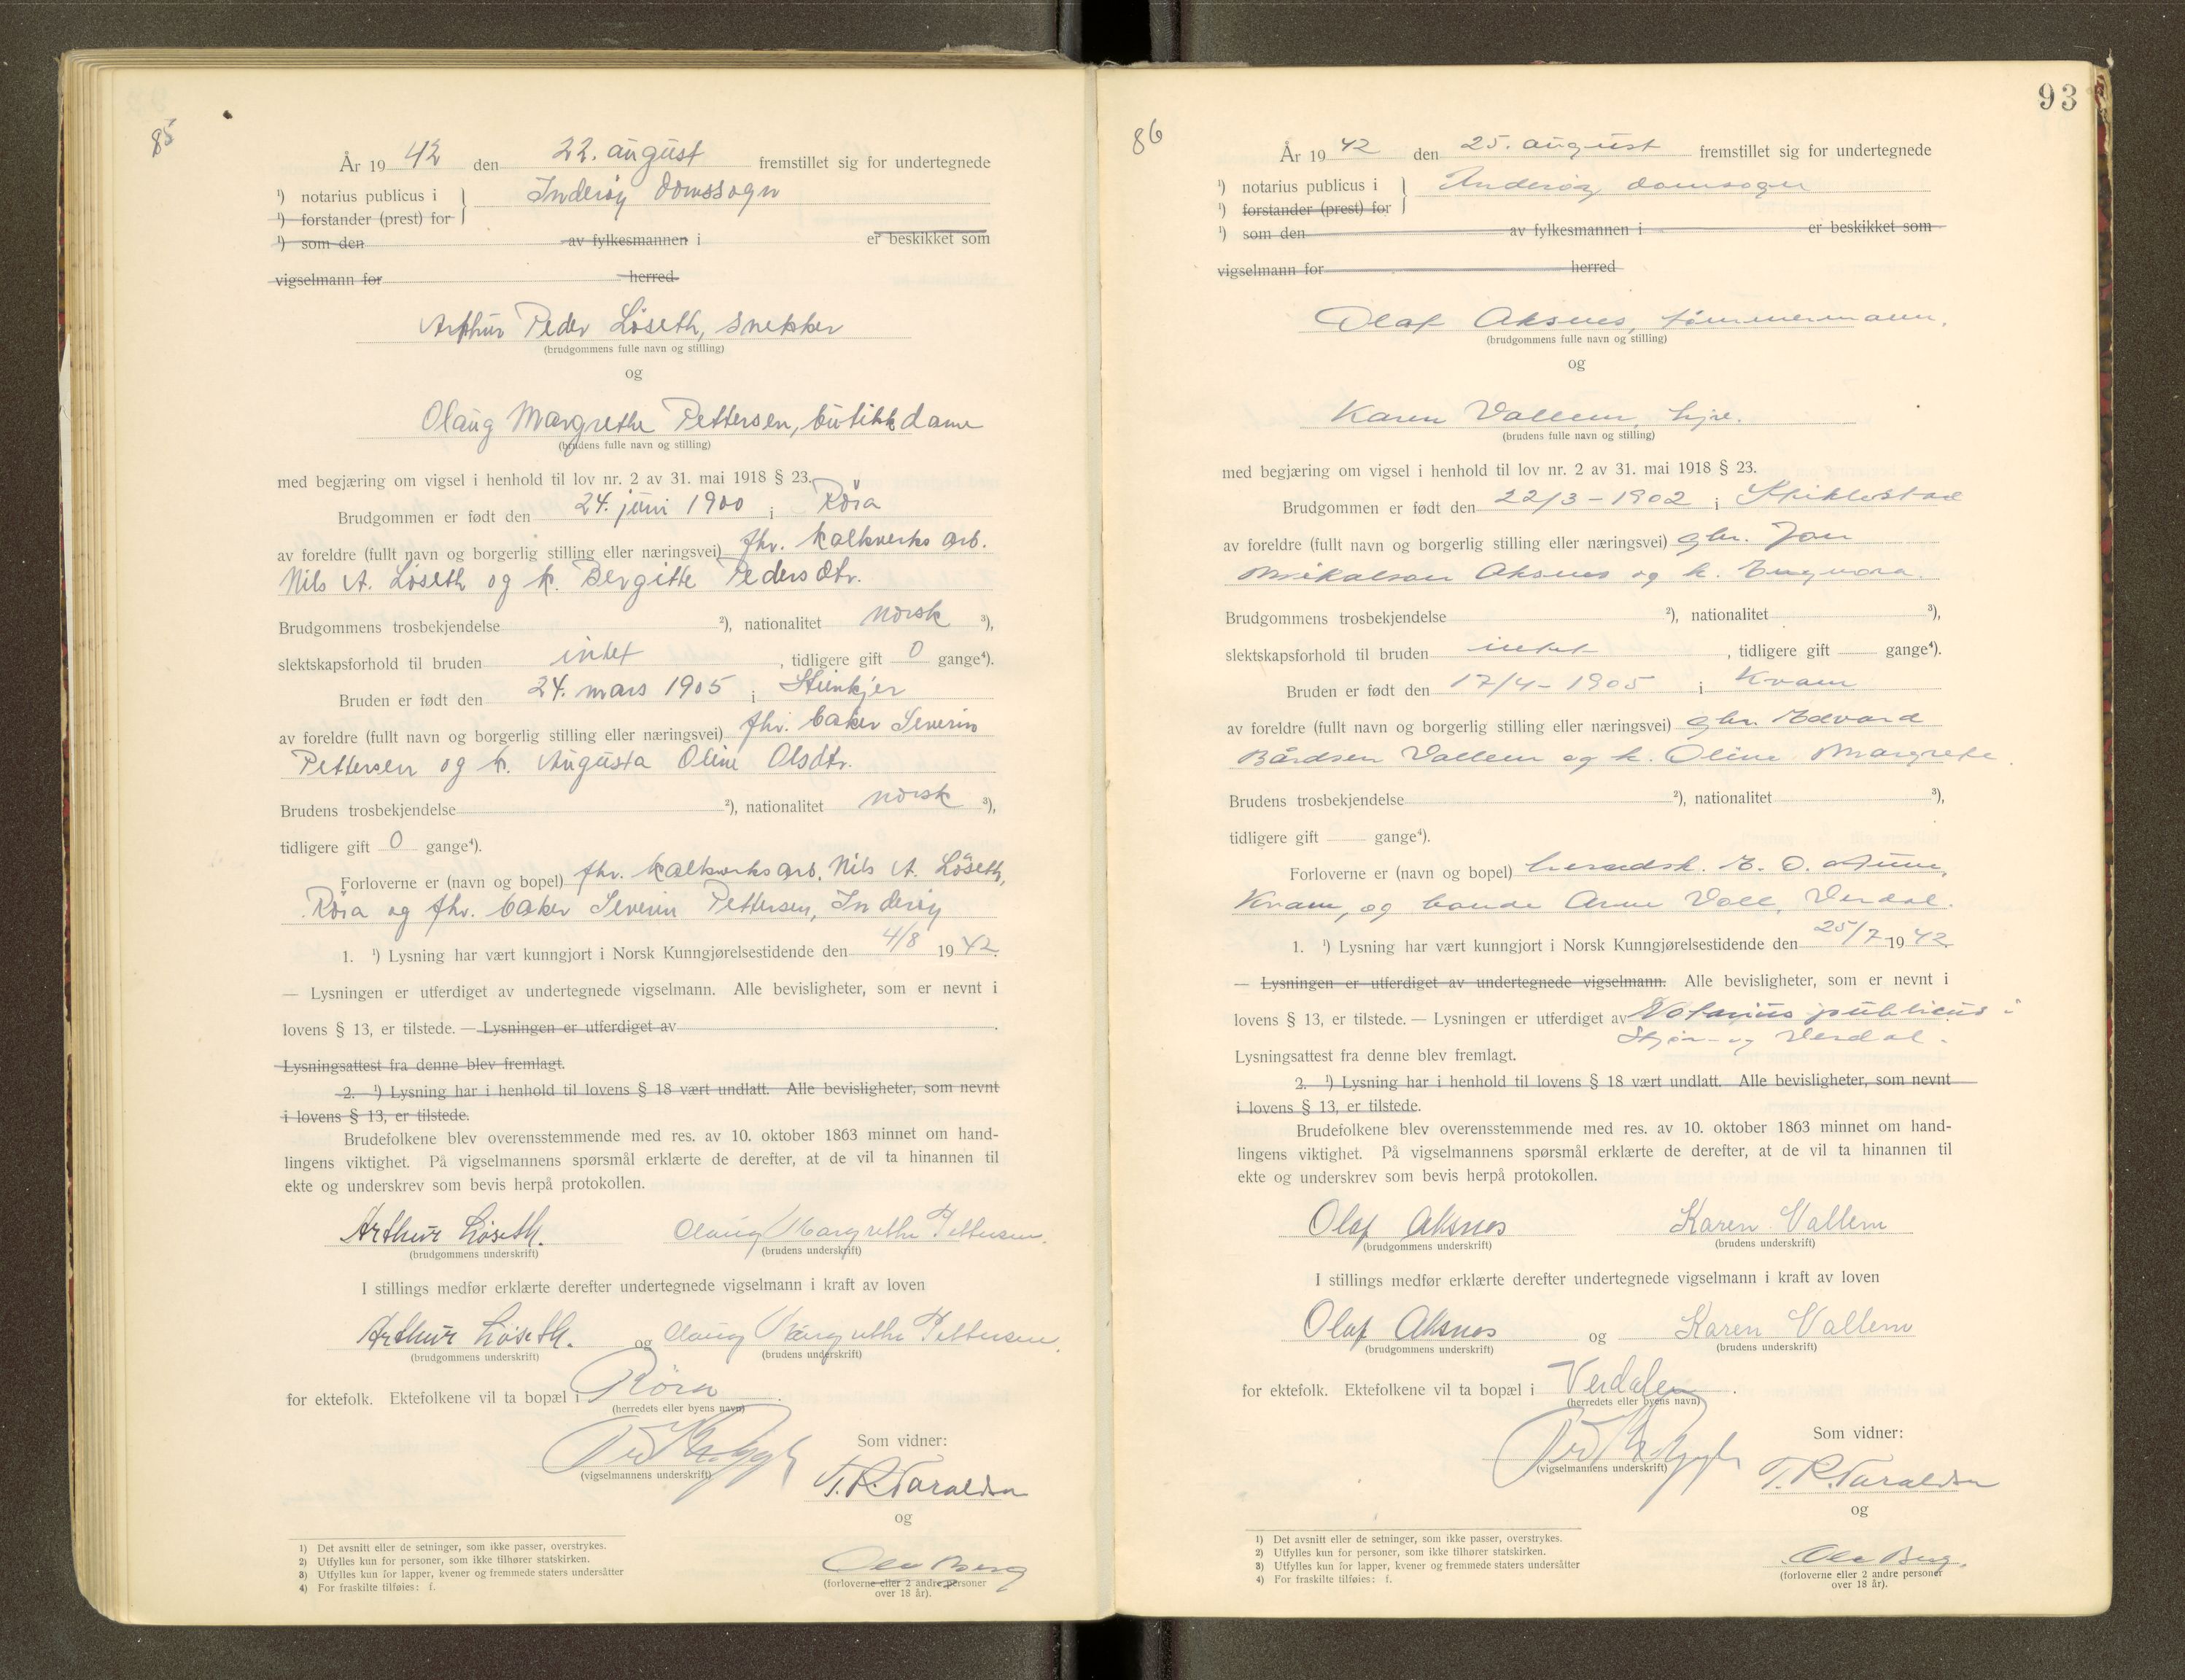 85
År 1942 den 22. august fremstillet sig for undertegnede
¹) notarius publicus i } Inderøy domssogn
¹) forstander (prest) for
¹) som den av fylkesmannen i er beskikket som
vigselmann for herred
Arthur Peder Löseth, snekker
(brudgommens fulle navn og stilling)
og
Olaug Margrethe Pettersen, butikkdame
(brudens fulle navn og stilling)
med begjæring om vigsel i henhold til lov nr. 2 av 31. mai 1918 § 23.
Brudgommen er født den 24. juni 1900 i Röra
av foreldre (fullt navn og borgerlig stilling eller næringsvei) fhv. kalkverks arb.
Nils A. Löseth og k. Bergitte Pedersdtr.
Brudgommens trosbekjendelse ²), nationalitet norsk ³),
slektskapsforhold til bruden intet , tidligere gift 0 gange⁴).
Bruden er født den 24. mars 1905 i Steinkjer
av foreldre (fullt navn og borgerlig stilling eller næringsvei) fhv. baker Severin
Pettersen og k. Augusta Oline Olsdtr.
Brudens trosbekjendelse ²), nationalitet norsk ³),
tidligere gift 0 gange⁴).
Forloverne er (navn og bopel) fhv. kalkverksarb. Nils A. Löseth,
Röra og fhv. baker Severin Pettersen, Inderöy
1. ¹) Lysning har vært kunngjort i Norsk Kunngjørelsestidende den 4/8 1942.
— Lysningen er utferdiget av undertegnede vigselmann. Alle bevisligheter, som er nevnt i
lovens § 13, er tilstede. — Lysningen er utferdiget av .
Lysningsattest fra denne blev fremlagt.
2. ¹) Lysning har i henhold til lovens § 18 vært undlatt. Alle bevisligheter, som nevnt
i lovens § 13, er tilstede.
Brudefolkene blev overensstemmende med res. av 10. oktober 1863 minnet om hand-
lingens viktighet. På vigselmannens spørsmål erklærte de derefter, at de vil ta hinannen til
ekte og underskrev som bevis herpå protokollen.
Arthur Löseth. Olaug Margrethe Pettersen.
(brudgommens underskrift) (brudens underskrift)
I stillings medfør erklærte derefter undertegnede vigselmann i kraft av loven
Arthur Löseth. og Olaug Margrethe Pettersen.
(brudgommens underskrift) (brudens underskrift)
for ektefolk. Ektefolkene vil ta bopæl i Röra .
(herredets eller byens navn)
(vigselmannens underskrift)
Som vidner:
T. R. Taraldsen
og
Ola Berg
(forloverne eller 2 andre personer
over 18 år).
1) Det avsnitt eller de setninger, som ikke passer, overstrykes.
2) Utfylles kun for personer, som ikke tilhører statskirken.
3) Utfylles kun for lapper, kvener og fremmede staters undersåtter
4) For fraskilte tilføies: f.
93
86
År 1942 den 25. august fremstillet sig for undertegnede
¹) notarius publicus i } Inderøy domssogn
¹) forstander (prest) for
¹) som den av fylkesmannen i er beskikket som
vigselmann for herred
Olaf Aksnes, tømmermann.
(brudgommens fulle navn og stilling)
og
Karen Vallem, hjve.
(brudens fulle navn og stilling)
med begjæring om vigsel i henhold til lov nr. 2 av 31. mai 1918 § 23.
Brudgommen er født den 22/3 - 1902 i Stiklestad
av foreldre (fullt navn og borgerlig stilling eller næringsvei) gbr. Jon
Mikalsen Aksnes og k. Ingvora.
Brudgommens trosbekjendelse ²), nationalitet ³),
slektskapsforhold til bruden intet , tidligere gift gange⁴).
Bruden er født den 17/4 - 1905 i Kvam
av foreldre (fullt navn og borgerlig stilling eller næringsvei) gbr Edvard
Bårdsen Vallem og k. Oline Margrete.
Brudens trosbekjendelse ²), nationalitet ³),
tidligere gift gange⁴).
Forloverne er (navn og bopel) herredsk. E. O. Aune,
Kvam, og bonde Arne Voll, Verdal.
1. ¹) Lysning har vært kunngjort i Norsk Kunngjørelsestidende den 25/7 1942
— Lysningen er utferdiget av undertegnede vigselmann. Alle bevisligheter, som er nevnt i
lovens § 13, er tilstede. — Lysningen er utferdiget av Notarius publicus i
Stjør- og Verdal.
Lysningsattest fra denne blev fremlagt.
2. ¹) Lysning har i henhold til lovens § 18 vært undlatt. Alle bevisligheter, som nevnt
i lovens § 13, er tilstede.
Brudefolkene blev overensstemmende med res. av 10. oktober 1863 minnet om hand-
lingens viktighet. På vigselmannens spørsmål erklærte de derefter, at de vil ta hinannen til
ekte og underskrev som bevis herpå protokollen.
Olaf Aksnes Karen Vallem
(brudgommens underskrift) (brudens underskrift)
I stillings medfør erklærte derefter undertegnede vigselmann i kraft av loven
Olaf Aksnes og Karen Vallem
(brudgommens underskrift) (brudens underskrift)
for ektefolk. Ektefolkene vil ta bopæl i Verdalen .
(herredets eller byens navn)
(vigselmannens underskrift)
Som vidner:
T. R. Taraldsen
og
Ola Berg.
(forloverne eller 2 andre personer
over 18 år).
1) Det avsnitt eller de setninger, som ikke passer, overstrykes.
2) Utfylles kun for personer, som ikke tilhører statskirken.
3) Utfylles kun for lapper, kvener og fremmede staters undersåtter
4) For fraskilte tilføies: f.